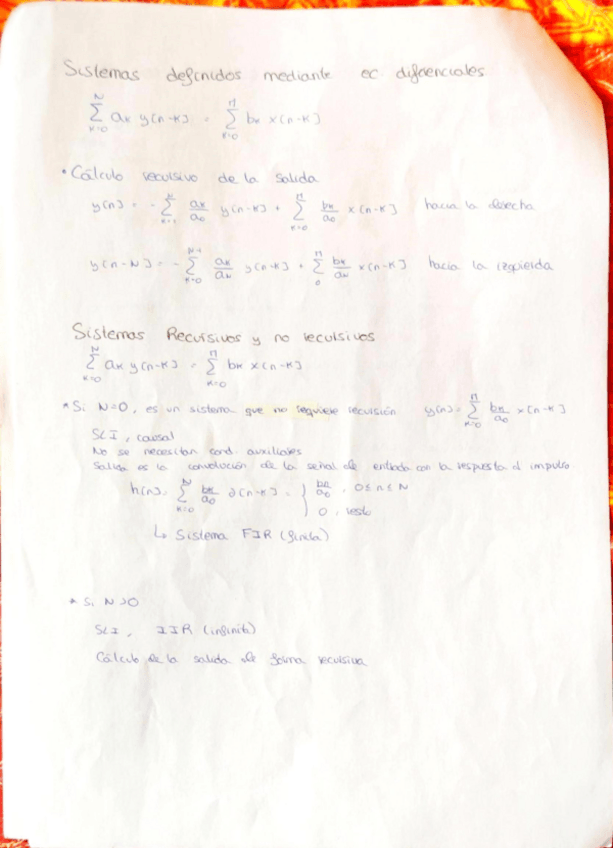 Sistemas definidos mediante ec diferenciales
∑_{k=0}^{N} a_k y[n-k] = ∑_{k=0}^{M} b_k x[n-k]
• Cálculo recursivo de la salida
y[n] = - ∑_{k=1}^{N} a_k/a_0 y[n-k] + ∑_{k=0}^{M} b_k/a_0 x[n-k] hacia la derecha
y[n-N] = - ∑_{k=0}^{N-1} a_k/a_N y[n-k] + ∑_{0}^{M} b_k/a_N x[n-k] hacia la izquierda
Sistemas Recursivos y no recursivos
∑_{k=0}^{N} a_k y[n-k] = ∑_{k=0}^{M} b_k x[n-k]
* Si N=0, es un sistema que no requiere recursión y[n] = ∑_{k=0}^{M} b_k/a_0 x[n-k]
SLI, causal
No se necesitan cond. auxiliares
Salida es la convolución de la señal de entrada con la respuesta al impulso
h[n] = ∑_{k=0}^{N} b_k/a_0 ∂[n-k] = { b_n/a_0, 0≤n≤N
0, resto
↳ Sistema FIR (finita)
* Si N>0
SLI, IIR (infinita)
Cálculo de la salida de forma recursiva